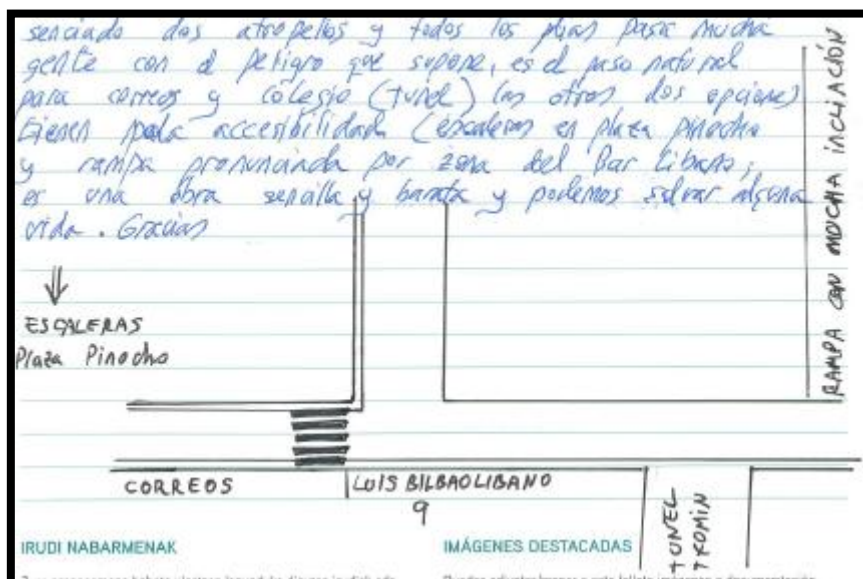 senciado dos atropellos y todos los dias pasa mucha
gente con el peligro que supone, es el paso natural
para correos y colegio (tunel) las otras dos opciones
tienen mala accesibilidad (escaleras en plaza pinocho
y rampa pronunciada por zona del Bar Libano,
es una obra sencilla y barata y podemos salvar alguna
vida. Gracias
RAMPA CON MUCHA INCLIACIÓN
ESCALERAS
Plaza Pinocho
CORREOS
LUIS BILBAO LIBANO
9
TUNEL
TXOMIN
IRUDI NABARMENAK
IMÁGENES DESTACADAS